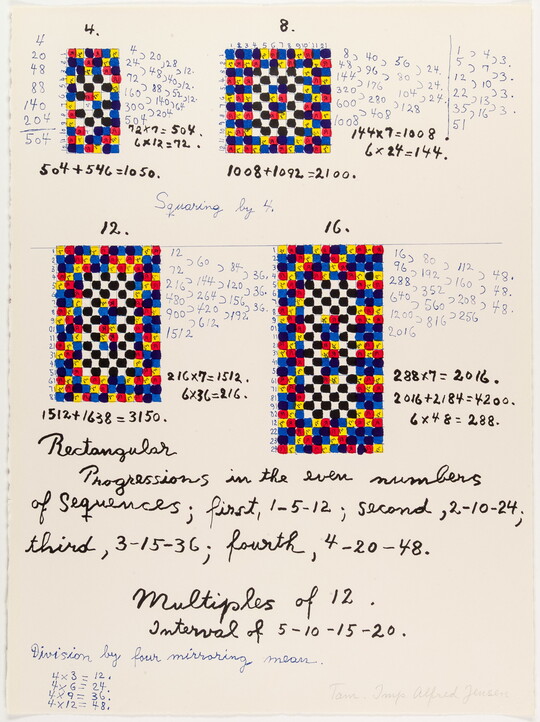 4.
8.
4
20
48
88
140
204
504
4 20
24 28
72 48 12.
160 88 40 12.
300 140 52 12.
504 204 64
72×7=504.
6×12=72.
504+546=1050.
8 40 56
48 96 80 24.
144 176 104 24.
320 280 128 24.
600 408
1008
1 4 3.
5 7 3.
12 10 3.
22 13 3.
35 16 3.
51
144×7=1008.
6×24=144.
1008+1092=2100.
Squaring by 4.
12.
16.
12 60 84 36.
72 144 120 36.
216 264 156 36.
480 420 192
900 612
1512
16 80 112 48.
96 192 160 48.
288 352 208 48.
640 560 256
1200 816
2016
216×7=1512.
6×36=216.
1512+1638=3150.
288×7=2016.
2016+2184=4200.
6×48=288.
Rectangular
Progressions in the even numbers
of Sequences; first, 1-5-12; second, 2-10-24;
third, 3-15-36; fourth, 4-20-48.
Multiples of 12.
Interval of 5-10-15-20.
Division by four mirroring mean.
4×3=12.
4×6=24.
4×9=36.
4×12=48.
Tam. Imp Alfred Jensen